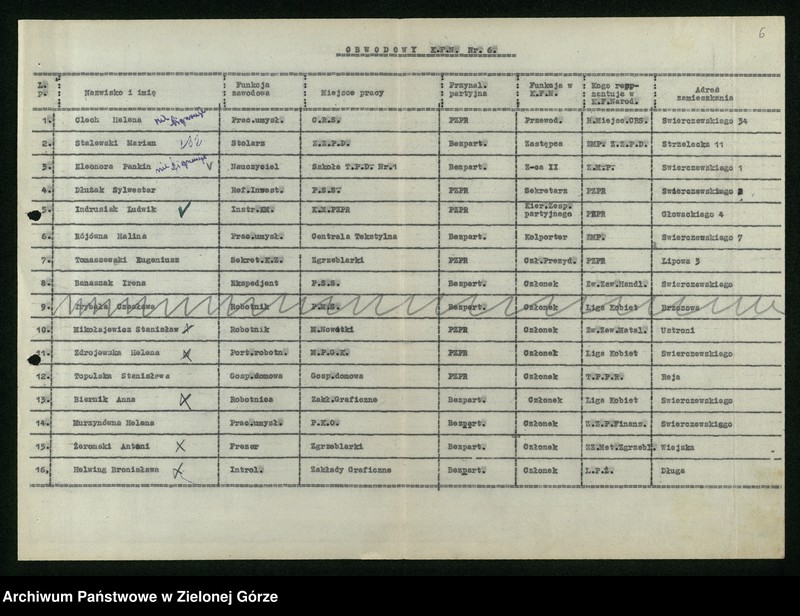 6
OBWODOWY K.F.N. Nr. 6.
L.p. Nazwisko i imię Funkcja zawodowa Miejsce pracy Przynal. partyjna Funkcja w K.F.N. Kogo reprezentuje w K.F.Narod. Adres zamieszkania
1. Cioch Helena Prac.umysł. C.R.S. PZPR Przewod. R.Miejsc.CRS. Swierczewskiego 34
2. Stalewski Marian Stolarz Z.Z.P.D. Bezpart. Zastępca ZMP. Z.Z.P.D. Strzelecka 11
3. Eleonora Pankin Nauczyciel Szkoła T.P.D. Nr.1 Bezpart. Z-ca II Z.M.P. Swierczewskiego 1
4. Dłużak Sylwester Ref.Inwest. P.S.S. PZPR Sekretarz PZPR Swierczewskiego
5. Indrusiak Ludwik Instr.KM. K.M.PZPR PZPR Kier.Zesp. partyjnego PZPR Głowackiego 4
6. Rójówna Halina Prac.umysł. Centrala Tekstylna Bezpart. Kolporter ZMP. Swierczewskiego 7
7. Tomaszewski Eugeniusz Sekret.K.Z. Zgrzeblarki PZPR Czł.Prezyd. PZPR Lipowa 3
8. Banaszak Irena Ekspedjent P.S.S. Bezpart. Członek Zw.Zaw.Handl. Swierczewskiego
9. Czesława Robotnik P.M.S. Bezpart. Członek Liga Kobiet Brzozowa
10. Mikołajewicz Stanisław Robotnik M.Nowotki PZPR Członek Zw.Zaw.Metal. Ustroni
11. Zdrojewska Helena Port.robotn. M.P.G.K. PZPR Członek Liga Kobiet Swierczewskiego
12. Topolska Stanisława Gosp.domowa Gosp.domowa PZPR Członek T.P.P.R. Reja
13. Biernik Anna Robotnica Zakł.Graficzne Bezpart. Członek Liga Kobiet Swierczewskiego
14. Murzyndwna Helena Prac.umysł. P.K.O. Bezpart. Członek Z.Z.P.Finans. Swierczewskiego
15. Żeromski Antoni Frezer Zgrzeblarki Bezpart. Członek ZZ.Met.Zgrzebl. Wiejska
16. Helwing Bronisława Introl. Zakłady Graficzne Bezpart. Członek L.P.Ż. Długa
Archiwum Państwowe w Zielonej Górze